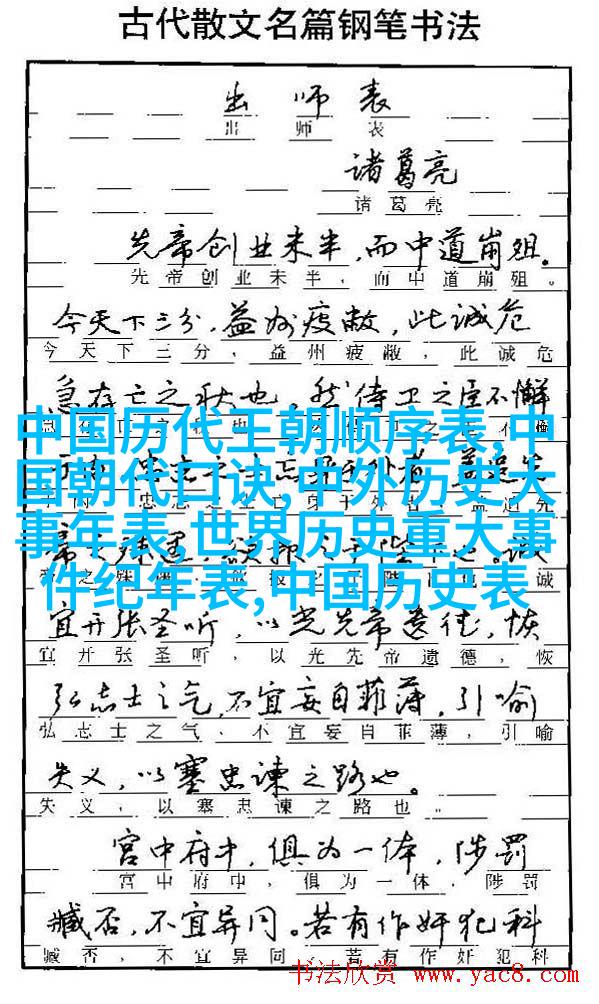 古代散文名篇钢笔书法
出师表
出师表
诸葛亮
诸葛亮
先帝创业未半，而中道崩殂。
先帝创业未半，而中道崩殂。
今天下三分，益州疲敝，此诚危
今天下三分，益州疲敝，此诚危
急存亡之秋也，然侍卫之臣不懈
中国历代王朝顺序表,中
国朝代口诀,中外历史大
事年表,世界历史重大事
件纪年表,中国历史表
宜开张圣听，以光先帝遗德，恢
宜开张圣听，以光先帝遗德，恢
弘志士之气，不宜妄自菲薄，引喻
弘志士之气，不宜妄自菲薄，引喻
失义，以塞忠谏之路也。
失义，以塞忠谏之路也。
宫中府中，俱为一体，陟罚
宫中府中，俱为一体，陟罚
臧否，不宜异同。若有作奸犯科
臧否，不宜异同。若有作奸犯科
书法欣赏 www.yac8.com